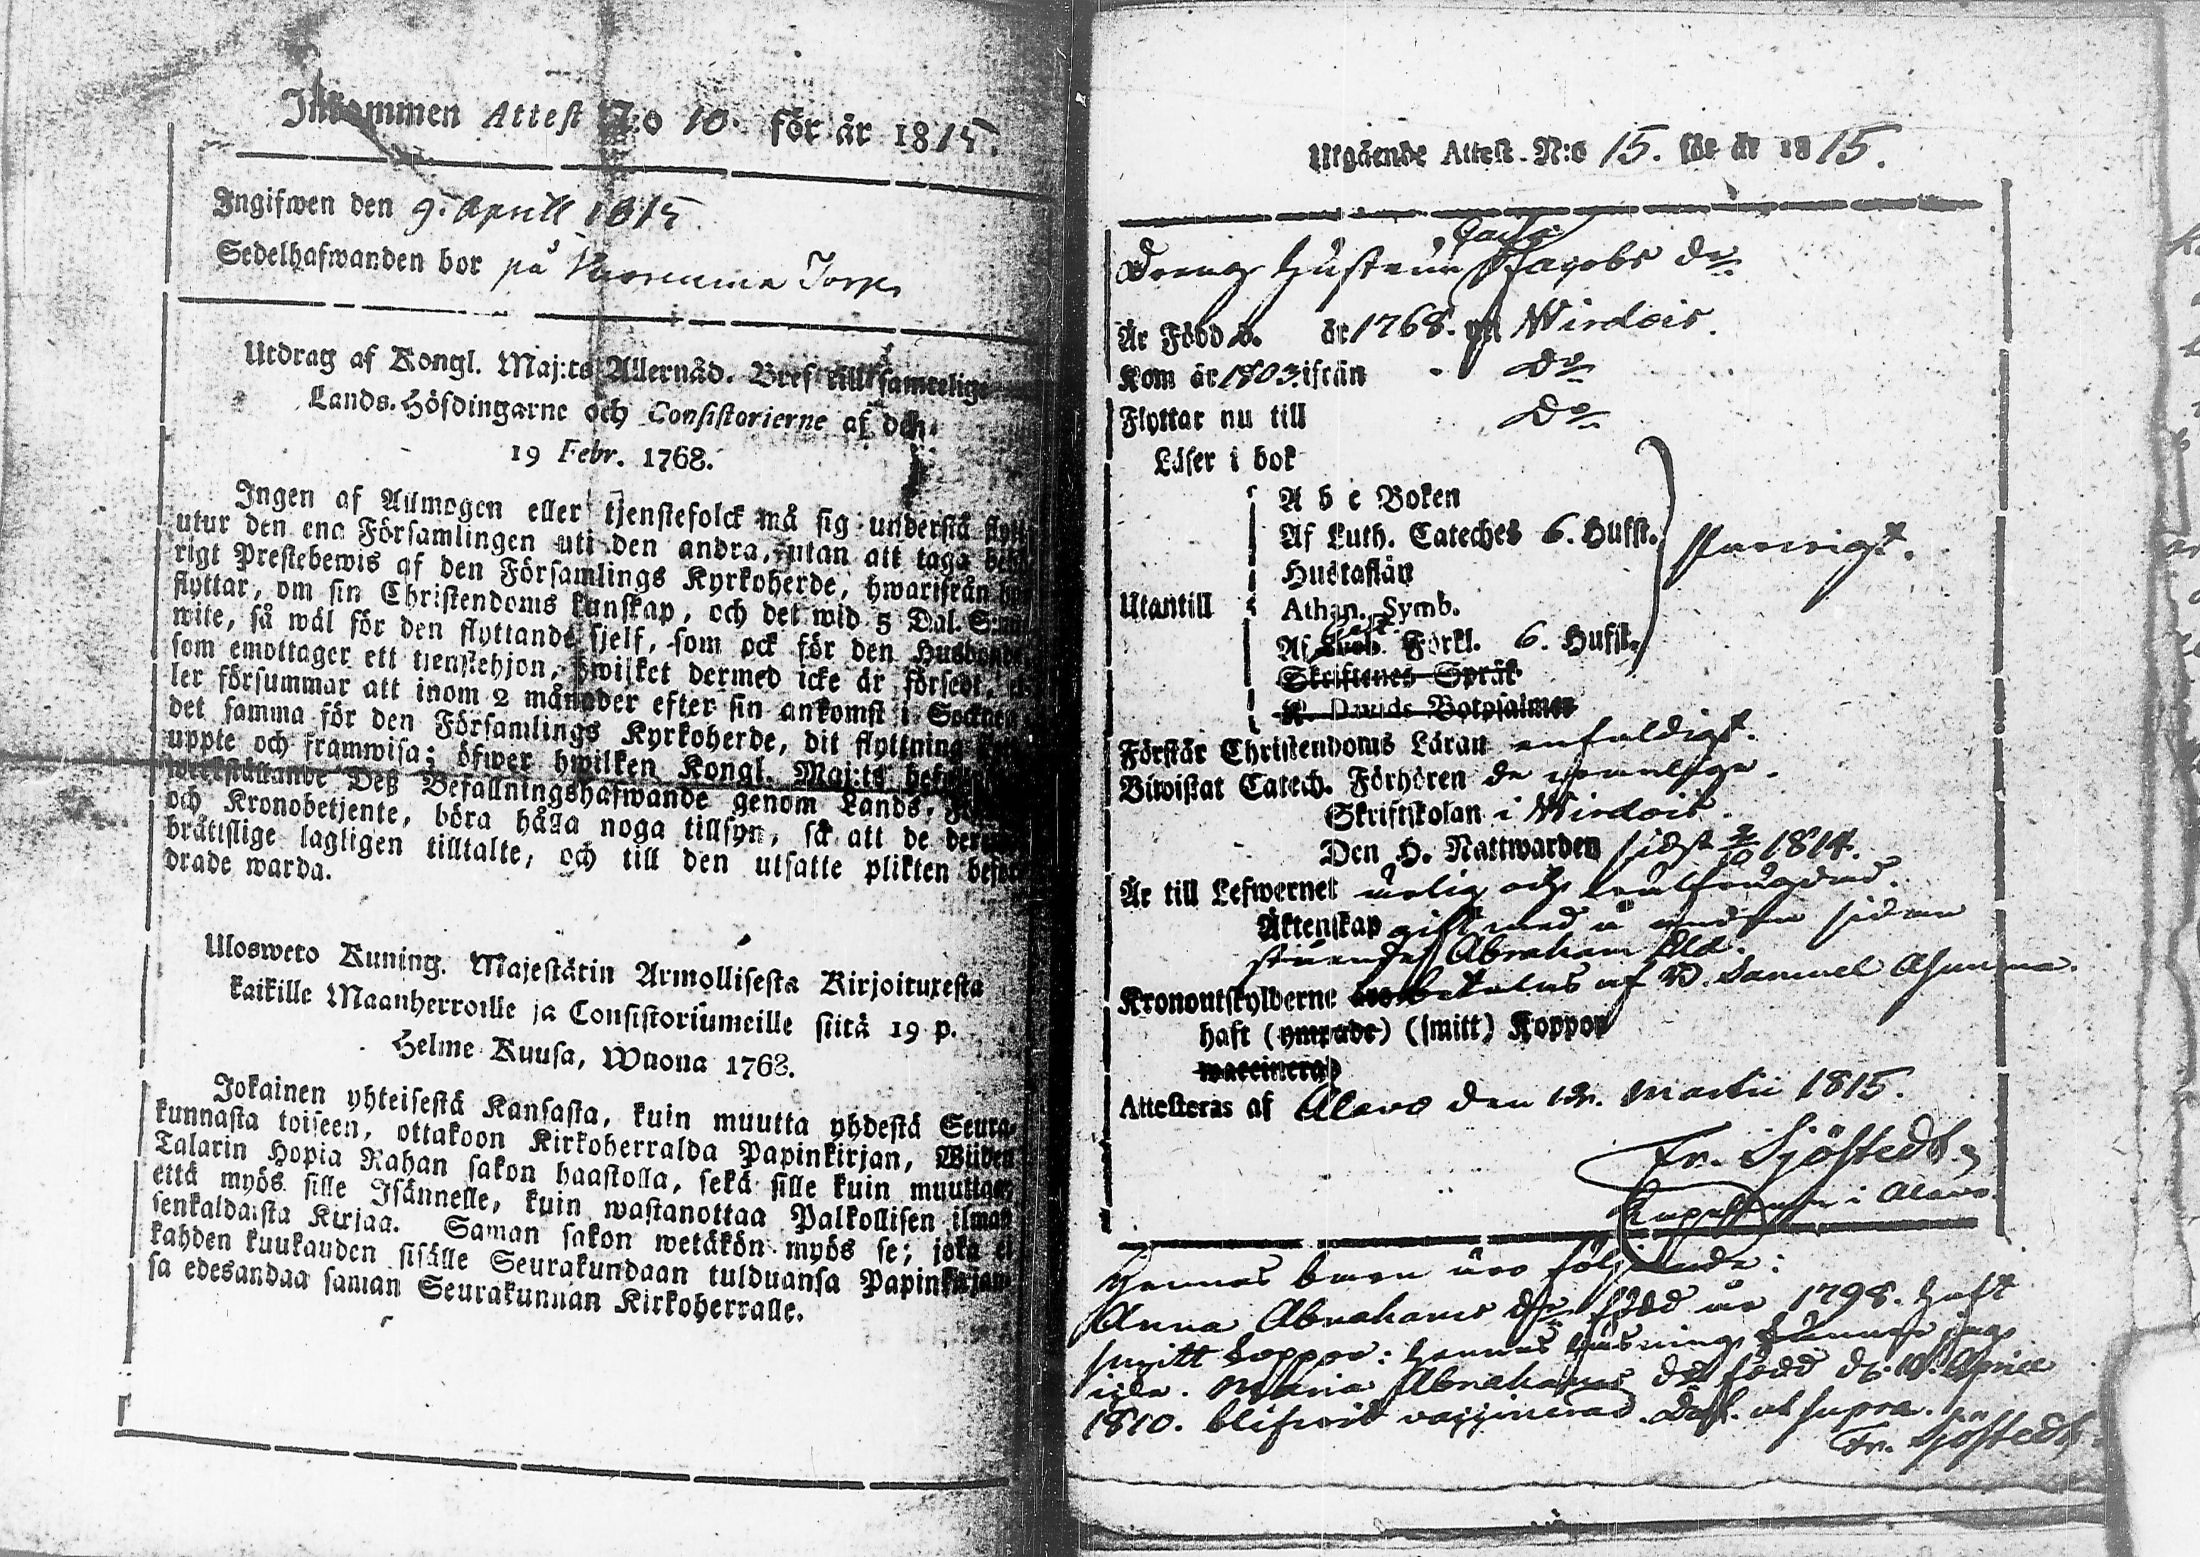 Inkommen Attest N:o 10. för år 1815.
Ingifwen den 9. Aprill 1815
Sedelhafwanden bor på Torp
Utdrag af Kongl. Maj:ts Allernåd. Bref till samtelige
Lands-Höfdingarne och Consistorierne af den
19 Febr. 1768.
Ingen af Allmogen eller tjenstefolck må sig understå flytt
utur den ena Församlingen uti den andra, utan att taga behö
rigt Prestebewis af den Församlings Kyrkoherde, hwarifrån
flyttar, om sin Christendoms kunskap, och det wid 5 Dal. S:mt
wite, så wäl för den flyttande sjelf, som ock för den Husbonde
som emottager ett tjenstehjon, hwilket dermed icke är försedt, el
ler försummar att inom 2 månader efter sin ankomst i Socknen
det samma för den Församlings Kyrkoherde, dit flyttning
uppte och framwisa; öfwer hwilken Kongl. Maj:ts
werkställande Deß Befallningshafwande genom Lands,
och Kronobetjente, böra hålla noga tillsyn, så att de
bråttslige lagligen tilltalte, och till den utsatte plikten befor
drade warda.
Uloswetο Kuning. Majestätin Armollisesta Kirjoituxesta
kaikille Maanherroille ja Consistoriumeille siitä 19 p.
Helme Kuusa, Wuona 1768.
Jokainen yhteisestä Kansasta, kuin muutta yhdestä Seura-
kunnasta toiseen, ottakoon Kirkoherralda Papinkirjan, Wiiden
Talarin Hopia Rahan sakon haastolla, sekä sille kuin muuttaa,
että myös sille Isännelle, kuin wastanottaa Palkollisen ilman
senkaldaista Kirjaa. Saman sakon wetäkön myös se; joka ei
kahden kuukauden sisälle Seurakundaan tulduansa Papinkirjan
sa edesandaa saman Seurakunnan Kirkoherralle.
Utgående Attest. N:o 15. för år 1815.
Dreng Hustrun Caisa Jacobs Dr
Är Född d. år 1768. på Wirdois.
Kom år 1803. ifrån Do
Flyttar nu till Do
Läser i bok
A b c Boken
Af Luth. Cateches 6. Hufst.
Hustaflan
Utantill
Athan. Symb.
Af Förkl. 6. Hufst.
Skriftenes Språk
K. Davids Botpsalmer
Förstår Christendoms Läran enfaldigt.
Biwistat Catech. Förhören de wanlige.
Skriftskolan i Wirdois.
Den H. Nattwarden sidst 2/10 1814.
Är till Lefwernet ärlig och
Äktenskap gift med
Abraham
Kronoutskylderne betalas af Samuel
haft (ympade) (smitt) Koppor
waccinerad
Attesteras af Alavo den 12. Martii 1815.
Fr. Sjöstedt
i Alavo.
Hennes barn äro följande:
Anna Abrahams Dr född år 1798. haft
smitt koppor: hennes läsning känner jag
icke. Maria Abrahams Dr född d. 10. April
1810. blifwit vaccinerad. Dat. ut supra.
Fr. Sjöstedt